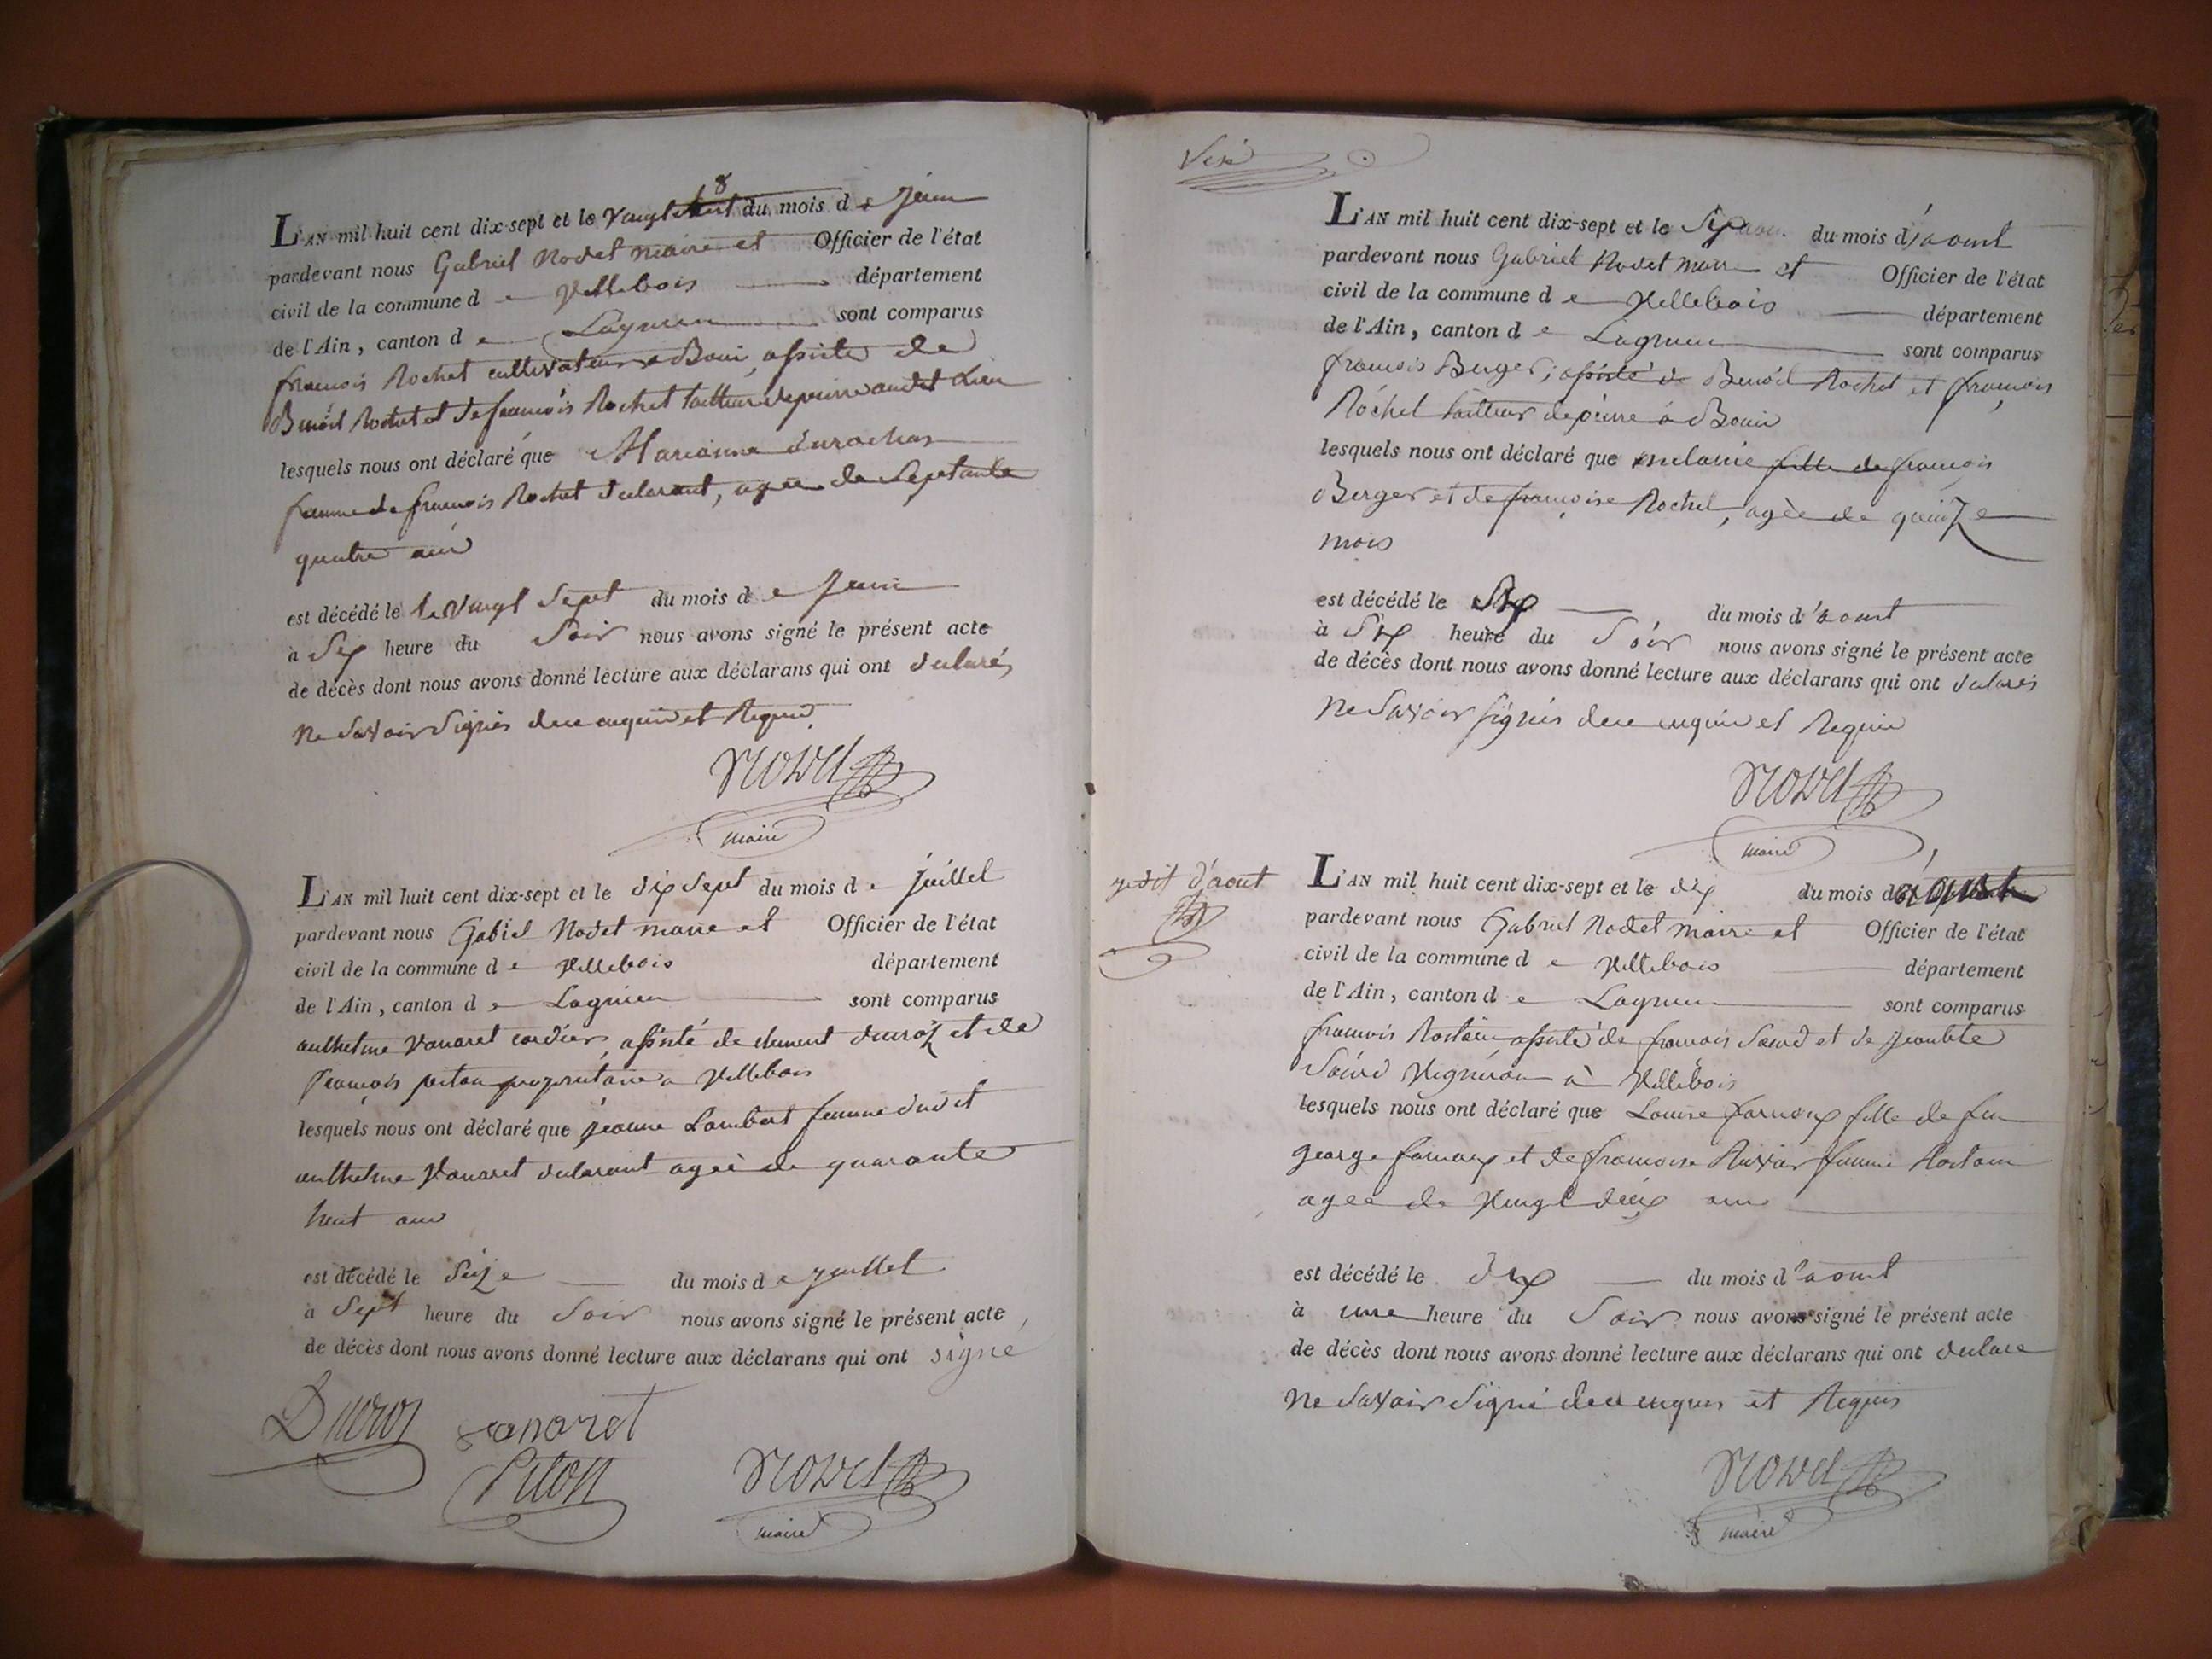 L'AN mil huit cent dix-sept et le vingt huit 8 du mois de juin
pardevant nous Gabriel Nodet maire et Officier de l'état
civil de la commune de Villebois département
de l'Ain, canton de Lagnieu sont comparus
françois Rochet cultivateur a Bouis, assisté de
Benoit Rochet et de françois Rochet tailleur de pierre audit lieu
lesquels nous ont déclaré que Marianne durochas
femme de françois Rochet declarant, agée de Septante
quatre ans
est décédé le le vingt Sept du mois de juin
à Six heure du Soir nous avons signé le présent acte
de décès dont nous avons donné lecture aux déclarans qui ont declarés
ne Savoir Signés de ce enquis et Requis
Nodet
maire
L'AN mil huit cent dix-sept et le dix Sept du mois de juillet
pardevant nous Gabiel Nodet maire et Officier de l'état
civil de la commune de Villebois département
de l'Ain, canton de Lagnieu sont comparus
anthelme Vanaret cordier, assisté de clement ducroz et de
françois piton proprietaire a Villebois
lesquels nous ont déclaré que jeanne Lambert femme dudit
anthelme Vanaret declarant agée de quarante
huit ans
est décédé le Seize du mois de juillet
à Sept heure du Soir nous avons signé le présent acte
de décès dont nous avons donné lecture aux déclarans qui ont signé
Ducroz vanaret
Piton Nodet
maire
Visé
L'AN mil huit cent dix-sept et le Sept du mois d'aout
pardevant nous Gabriel Nodet maire et Officier de l'état
civil de la commune de Villebois département
de l'Ain, canton de Lagnieu sont comparus
françois Berger, assisté de Benoit Rochet et françois
Rochet tailleur de pierre à Bouis
lesquels nous ont déclaré que melanie fille de françois
Berger et de françoise Rochet, agée de quinze
mois
est décédé le Six du mois d'aout
à Six heure du Soir nous avons signé le présent acte
de décès dont nous avons donné lecture aux déclarans qui ont declarés
ne Savoir signés de ce enquis et Requis
Nodet
maire
d'aout
L'AN mil huit cent dix-sept et le dix du mois d'aoust
pardevant nous Gabriel Nodet maire et Officier de l'état
civil de la commune de Villebois département
de l'Ain, canton de Lagnieu sont comparus
françois Rostain assisté de françois Saird et de
Saird Vigneron à Villebois
lesquels nous ont déclaré que Louise farnoux fille de feu
george farnoux et de francoise femme Rostain
agée de Vingt deux ans
est décédé le Dix du mois d'aout
à une heure du Soir nous avons signé le présent acte
de décès dont nous avons donné lecture aux déclarans qui ont declare
ne Savoir Signé de ce enquis et Requis
Nodet
maire